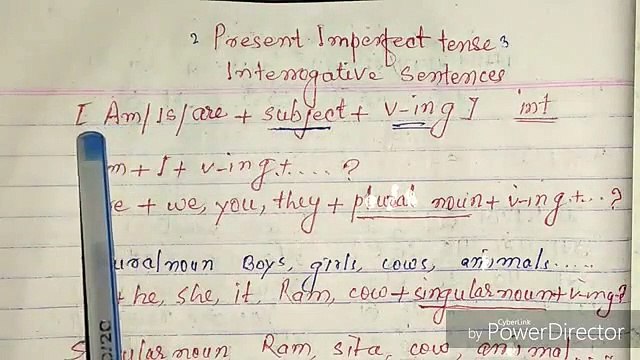 2 Present Imperfect tense 3
Interrogative Sentences
[ Am/Is/are + subject + v-ing ] int
m + I + v-ing + .... ?
e + we, you, they + plural noun + v-ing + ... ?
ural noun Boys, girls, cows, animals.....
+ he, she, it, Ram, cow + singular noun + v-ing - ?
ular noun Ram, sita, cow animal...
CyberLink
by PowerDirector